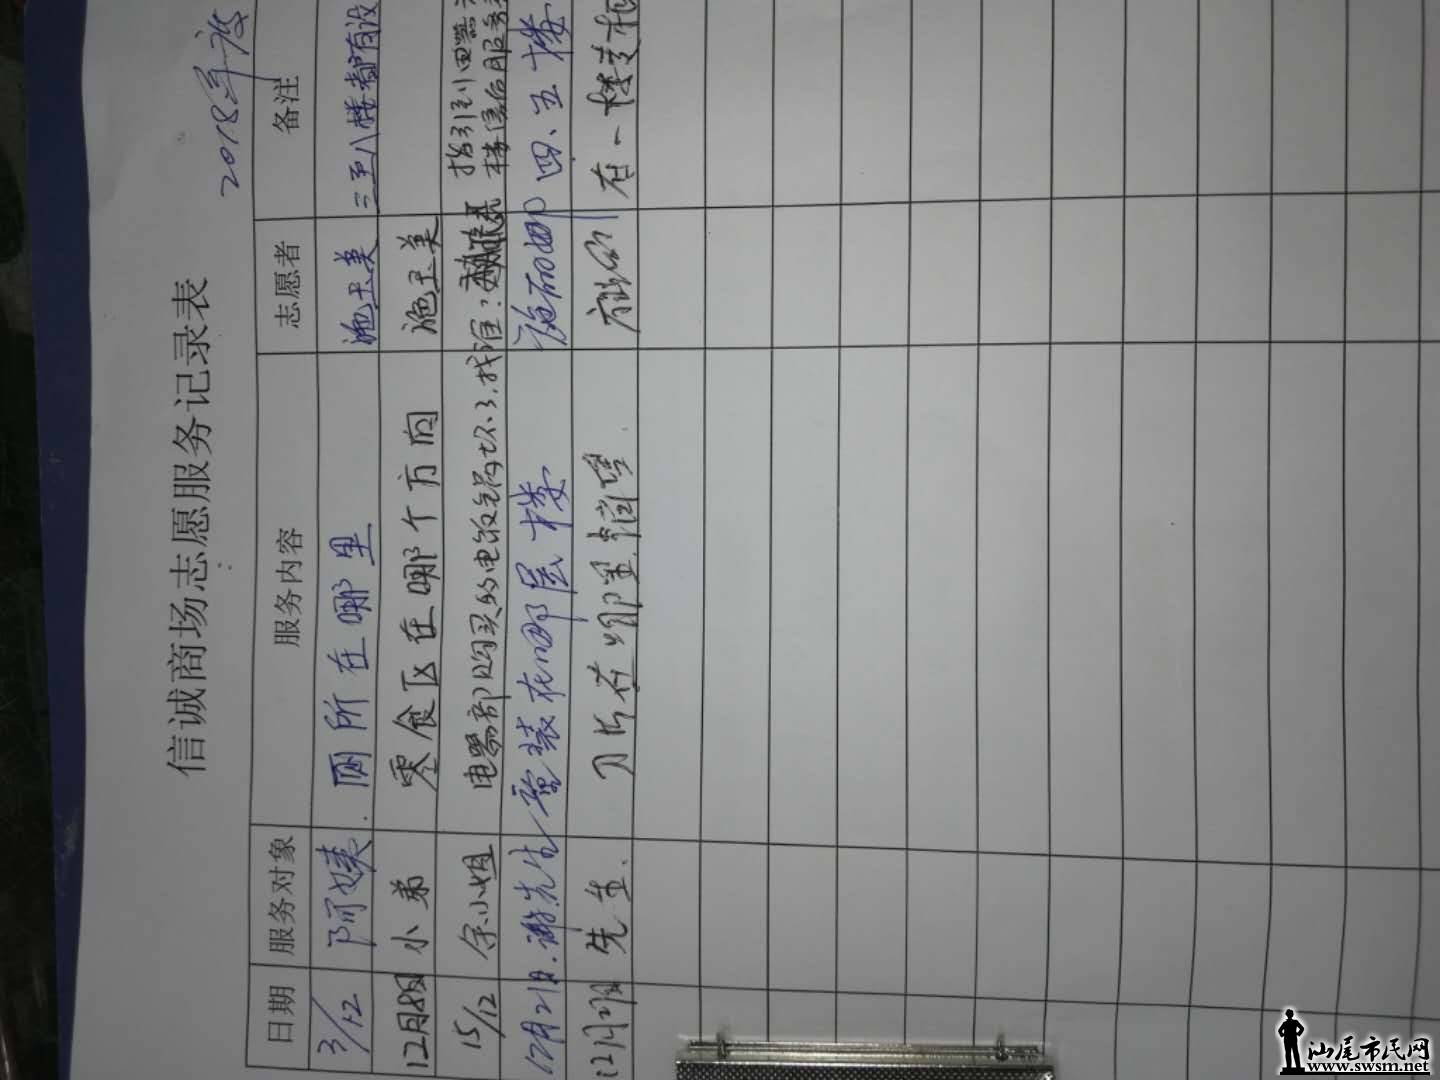 信诚商场志愿服务记录表
2018年度
日期 服务对象 服务内容 志愿者 备注
3/12 阿姨. 厕所在哪里 施玉美 三至八楼都有设
12月 小弟 零食区在哪个方向 施玉美
15/12 余小姐 电器部购买的电饭锅坏了,找谁? 指引到电器
楼售后服务
12月21日. 谢先生 童装在哪层楼 施丽娜 四、五楼
先生. 刀片在哪里 在一楼
汕尾市民网
www.swsm.net